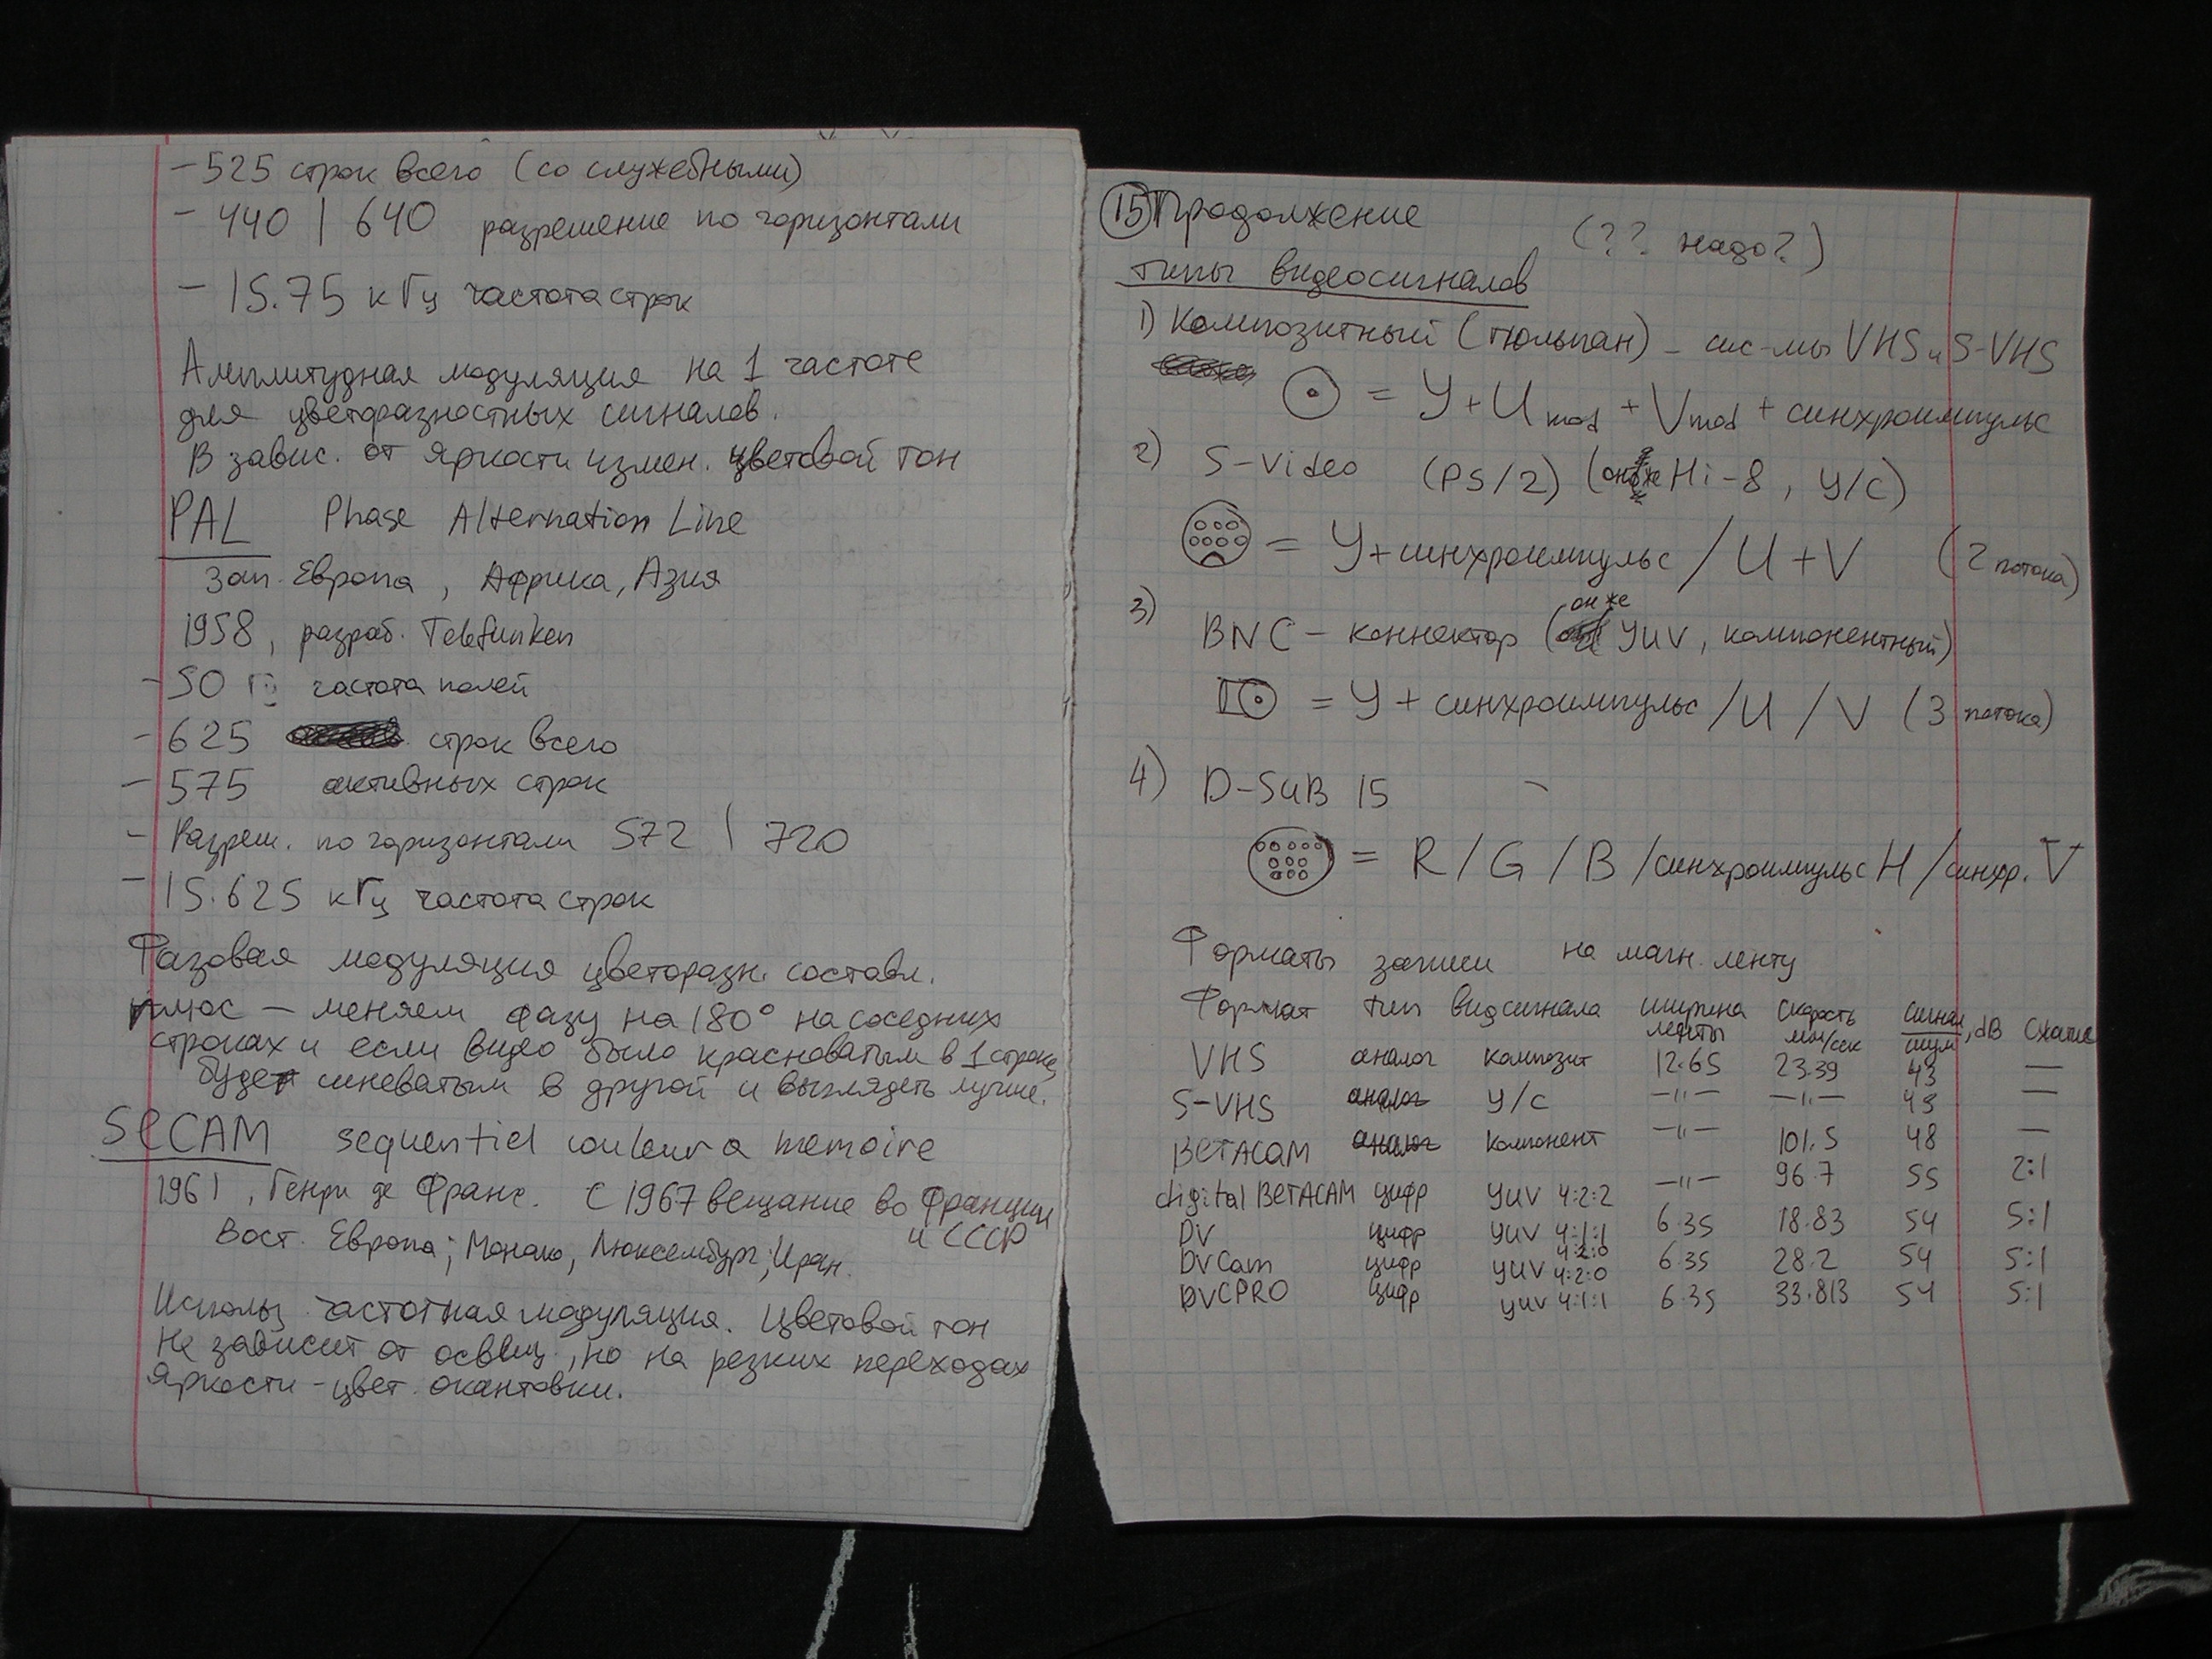 - 525 строк всего (со служебными)
- 440 | 640 разрешение по горизонтали
- 15.75 кГц частота строк
Амплитудная модуляция на 1 частоте
для цветоразностных сигналов.
В завис. от яркости измен. цветовой тон
PAL Phase Alternation Line
Зап. Европа, Африка, Азия
1958, разраб. Telefunken
- 50 Гц частота полей
- 625 строк всего
- 575 активных строк
- Разреш. по горизонтали 572 | 720
- 15.625 кГц частота строк
Фазовая модуляция цветоразн. составл.
плюс - меняем фазу на 180° на соседних
строках и если видео было красноватым в 1 строке,
будет синеватым в другой и выглядеть лучше.
SECAM sequentiel couleur a memoire
1961, Генри де Франс. С 1967 вещание во Франции
и СССР
Вост. Европа; Монако, Люксембург; Иран.
Использ. частотная модуляция. Цветовой тон
не зависит от освещ., но на резких переходах
яркости - цвет. окантовки.
15 Продолжение (?? надо?)
типы видеосигналов
1) Композитный (тюльпан) - сис-мы VHS и S-VHS
= Y + U mod + V mod + синхроимпульс
2) S-Video (PS/2) (он же Hi-8, Y/C)
= Y + синхроимпульс / U + V (2 потока)
3) BNC - коннектор (он же YUV, компонентный)
= Y + синхроимпульс / U / V (3 потока)
4) D-SUB 15
= R / G / B / синхроимпульс H / синхр. V
Форматы записи на магн. ленту
Формат тип видсигнала ширина ленты скорость мм/сек сигнал/шум, dB Сжатие
VHS аналог композит 12.65 23.39 43 —
S-VHS аналог Y/C —"— —"— 45 —
BETACAM аналог компонент —"— 101.5 48 —
digital BETACAM цифр YUV 4:2:2 —"— 96.7 55 2:1
DV цифр YUV 4:1:1 4:2:0 6.35 18.83 54 5:1
DVCam цифр YUV 4:2:0 6.35 28.2 54 5:1
DVCPRO цифр YUV 4:1:1 6.35 33.813 54 5:1